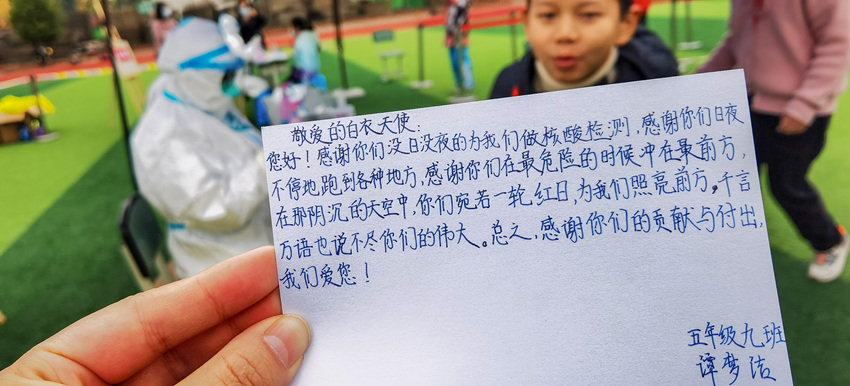 敬爱的白衣天使:
您好!感谢你们没日没夜的为我们做核酸检测,感谢你们日夜
不停地跑到各种地方,感谢你们在最危险的时候冲在最前方,
在那阴沉的天空中,你们宛若一轮红日,为我们照亮前方。千言
万语也说不尽你们的伟大。总之,感谢你们的贡献与付出,
我们爱您!
五年级九班
谭梦洁